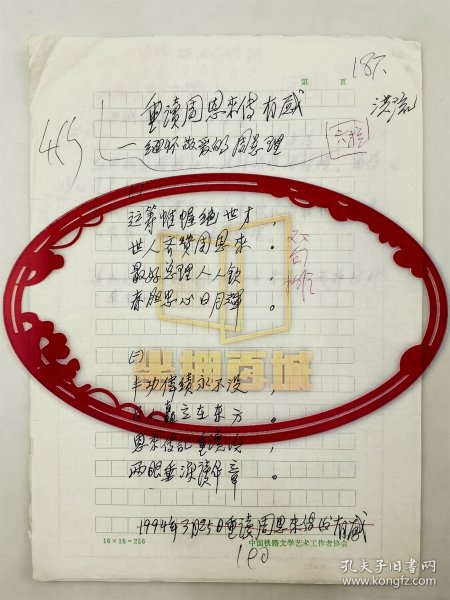 第 页
187.
重读周恩来传有感
洪流
—缅怀敬爱的周总理
(一)
运筹帷幄绝世才，
世人齐赞周恩来。
最好总理人人钦，
赤胆忠心日月辉。
双句排
(二)
丰功伟绩永不没，
巨人矗立在东方。
恩来传记重读后，
两眼垂泪读华章。
1994年3月25日重读周恩来传以有感
16×16=256
中国铁路文学艺术工作者协会
坐拥百城
孔夫子旧书网
kongfz.com